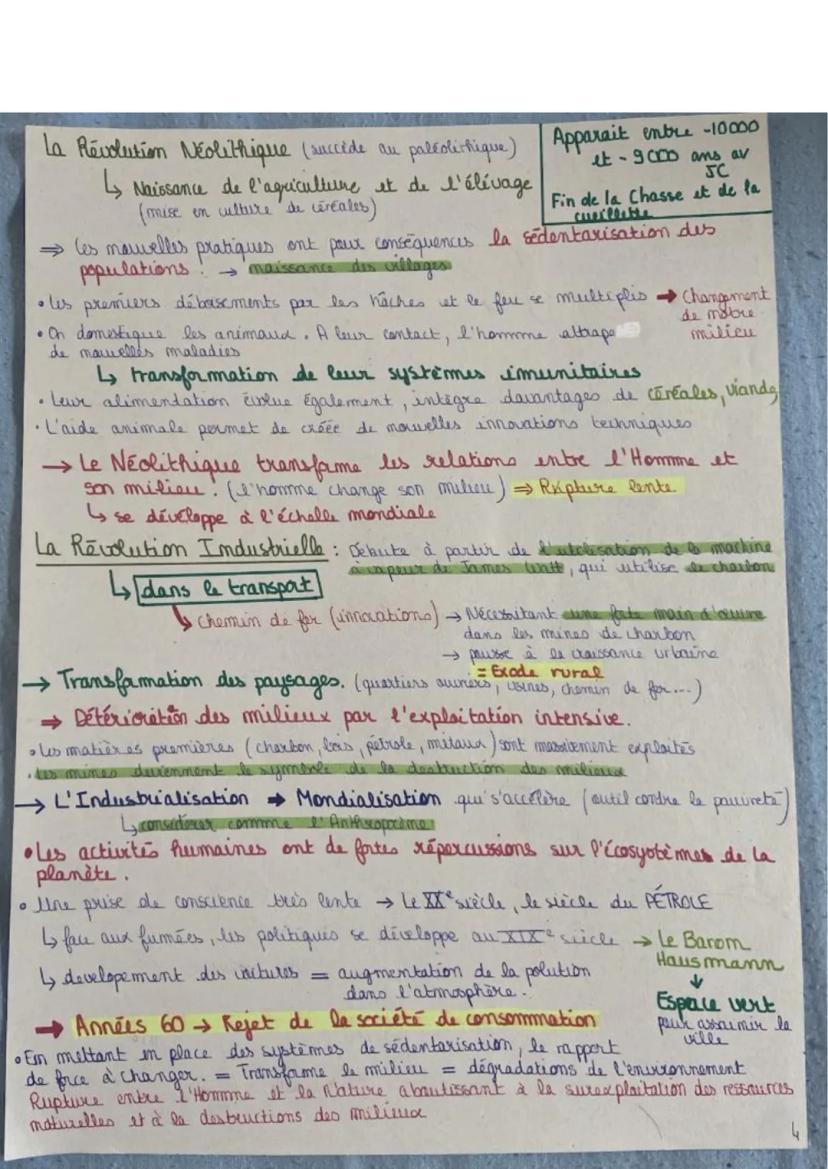 La Révolution Néolithique (succède au paléolithique)
Apparait entre -10000
et -9000 ans av
JC
Fin de la Chasse et de la
cueillette
↳ Naissance de l'agriculture et de l'élévage
(mise en culture de céréales)
⇒ Les nouvelles pratiques ont pour conséquences la sédentarisation des
populations. → naissance des villages
• Les premiers déboisements par les hâches et le feu se multiplis → Changement
de notre
milieu
• On domestique les animaux. A leur contact, l'homme attrape
de nouvelles maladies
↳ transformation de leur systèmes imunitaires
• Leur alimentation évolue également, intègre davantages de céréales, viande,
• L'aide animale permet de créée de nouvelles innovations techniques
→ Le Néolithique transforme les relations entre l'Homme et
son milieu. (l'homme change son milieu) ⇒ Rupture lente
↳ se développe à l'échelle mondiale
La Révolution Industrielle : Débute à partir de l'utilisation de la machine
à vapeur de James Watt, qui utilise le charbon
↳ dans le transport
↳ chemin de fer (innovations) → Nécessitant une forte main d'œuvre
dans les mines de charbon
→ pousse à la croissance urbaine
= Exode rural
→ Transformation des paysages. (quartiers ouvriers, usines, chemin de fer...)
⇒ Détérioration des milieux par l'exploitation intensive.
• Les matières premières (charbon, bois, pétrole, métaux) sont massivement exploités
• Les mines deviennent le symbole de la destruction des milieux
→ L'Industrialisation ⇒ Mondialisation qui s'accélère (outil contre la pauvreté)
↳ considérer comme l'Anthropocène
• Les activités humaines ont de fortes répercussions sur l'écosystèmes de la
planète.
• Une prise de conscience très lente → Le XXe siècle, le siècle du PÉTROLE
↳ face aux fumées, les politiques se développe au XIXe siècle → Le Baron
Hausmann
↓
Espace vert
pour assainir la
ville
↳ developement des voitures = augmentation de la polution
dans l'atmosphère.
→ Années 60 → Rejet de la société de consommation
• En mettant en place des systèmes de sédentarisation, le rapport
de force à changer. = Transforme le milieu = dégradations de l'environnement
Rupture entre l'Homme et la Nature aboutissant à la surexploitation des ressources
naturelles et à la destructions des milieux
4